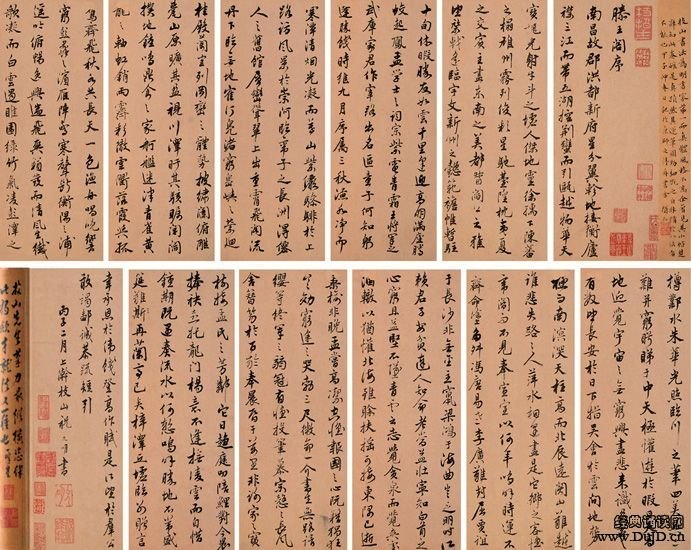 滕王閣序
南昌故郡洪都新府星分翼軫地接衡廬
襟三江而帶五湖控荆蠻而引甌越物華天
寶龍光射牛斗之墟人傑地靈徐孺下陳蕃
之榻雄州霧列俊彩星馳臺隍枕夷夏
之交賓主盡東南之美都督閻公之雅
望棨戟遥臨宇文新州之懿範襜帷暫駐
十旬休暇勝友如雲千里逢迎高朋滿座騰
蛟起鳳孟學士之詞宗紫電青霜王將軍之
武庫家君作宰路出名區童子何知躬
逢勝餞時維九月序屬三秋潦水淨而
寒潭清煙光凝而暮山紫儼驂騑於上
路訪風景於崇阿臨帝子之長洲得仙人
之舊館層巒聳翠上出重霄飛閣流
丹臨無地鶴汀鳧渚窮島嶼之縈迴
桂殿蘭宮列岡巒之體勢披繡闥俯雕
甍山原曠其盈視川澤盱其駭矚閭閻
撲地鐘鳴鼎食之家舸艦迷津青雀黄
龍之軸虹銷雨霽彩徹雲衢落霞與孤
鶩齊飛秋水共長天一色漁舟唱晚響
窮彭蠡之濱雁陣驚寒聲斷衡陽之浦
遥吟俯暢逸興遄飛爽籟發而清風生纖
歌凝而白雲遏睢園綠竹氣凌彭澤之
樽鄴水朱華光照臨川之筆四美具二
難并窮睇眄於中天極娛遊於暇日天高
地迥覺宇宙之無窮興盡悲來識盈虛之
有數望長安於日下指吳會於雲間地勢
極而南溟深天柱高而北辰遠關山難越
誰悲失路之人萍水相逢盡是他鄉之客懷
帝閽而不見奉宣室以何年嗚呼時運不
齊命途多舛馮唐易老李廣難封屈賈誼
於長沙非無聖主竄梁鴻於海曲豈乏明時所
賴君子安貧達人知命老當益壯寧知白首之
心窮且益堅不墜青雲之志酌貪泉而覺爽處
涸轍以猶懽北海雖賒扶搖可接東隅已逝
桑榆非晚孟嘗高潔空懷報國之心阮籍猖狂
豈效窮途之哭勃三尺微命一介書生無路請
纓等終軍之弱冠有懷投筆慕宗愨之長風
舍簪笏於百齡奉晨昏於萬里非謝家之寶
樹接孟氏之芳鄰他日趨庭叨陪鯉對今晨
捧袂喜托龍門楊意不逢撫凌雲而自惜
鍾期既遇奏流水以何慚嗚呼勝地不常盛
筵難再蘭亭已矣梓澤丘墟臨別贈言
幸承恩於偉餞登高作賦是所望於羣公
敢竭鄙誠恭疏短引
丙子二月上澣枝山祝允明書
www.DujD.cn